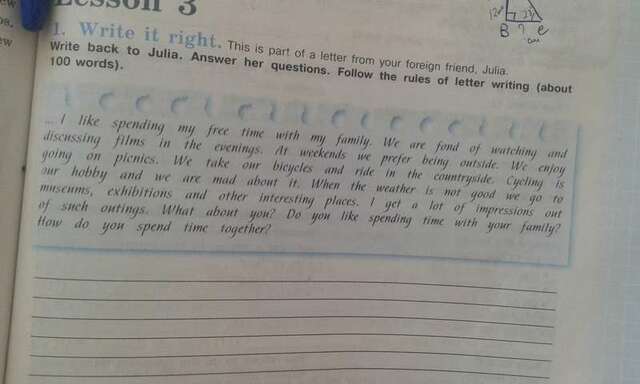 Lesson 3
1. Write it right. This is part of a letter from your foreign friend, Julia.
Write back to Julia. Answer her questions. Follow the rules of letter writing (about
100 words).
... I like spending my free time with my family. We are fond of watching and
discussing films in the evenings. At weekends we prefer being outside. We enjoy
going on picnics. We take our bicycles and ride in the countryside. Cycling is
our hobby and we are mad about it. When the weather is not good we go to
museums, exhibitions and other interesting places. I get a lot of impressions out
of such outings. What about you? Do you like spending time with your family?
How do you spend time together?